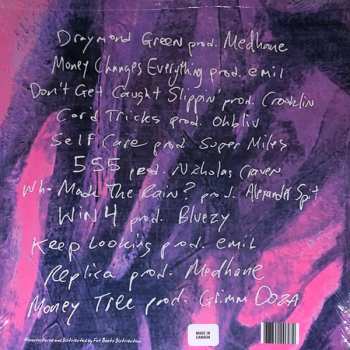 Draymond Green prod. Medhane
Money Changes Everything prod. emil
Don't Get Caught Slippin' prod. Cronklin
Card Tricks prod. Ohbliv
Self Care prod. Super Miles
555 prod. Nicholas Craven
Who Made The Rain? prod. Alexander Spit
Win 4 prod. Bluezy
Keep Looking prod. emil
Replica prod. Medhane
Money Tree prod. Glimm Doza
MADE IN
CANADA
Manufactured and Distributed by Fat Beats Distribution